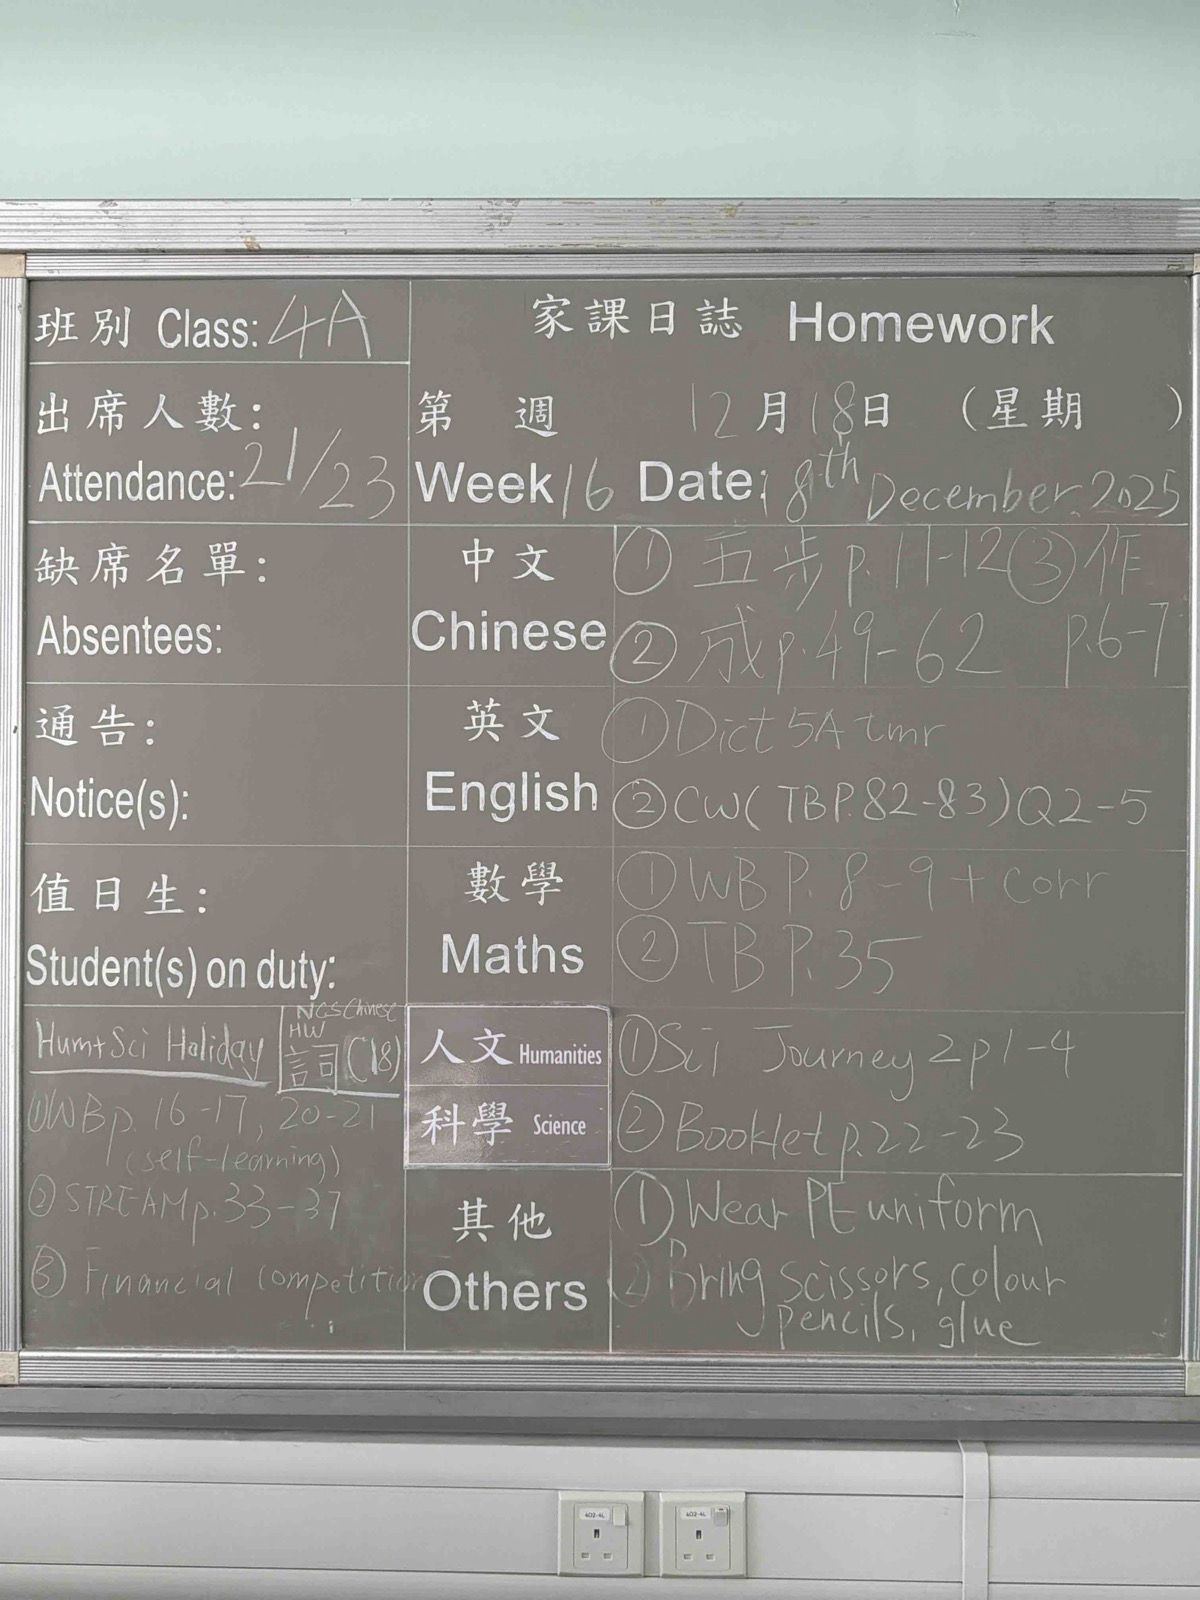 班別 Class: 4A
家課日誌 Homework
出席人數:
Attendance: 21/23
第 週 12月18日 (星期 )
Week 16 Date: 18th December, 2025
缺席名單:
Absentees:
中文
Chinese
① 五步 p.11-12 ③ 作
② 成 p.49-62 p.6-7
通告:
Notice(s):
英文
English
① Dict 5A tmr
② CW (TB P.82-83) Q2-5
值日生:
Student(s) on duty:
數學
Maths
① WB P.8-9 + corr
② TB P.35
Hum+Sci Holiday
NCS Chinese
HW
詞 (18)
① WB p.16-17, 20-21
(self-learning)
② STREAM p.33-37
③ Financial competition
人文 Humanities
科學 Science
① Sci Journey 2 p1-4
② Booklet p.22-23
其他
Others
① Wear PE uniform
② Bring scissors, colour
pencils, glue
402-4L
402-4L